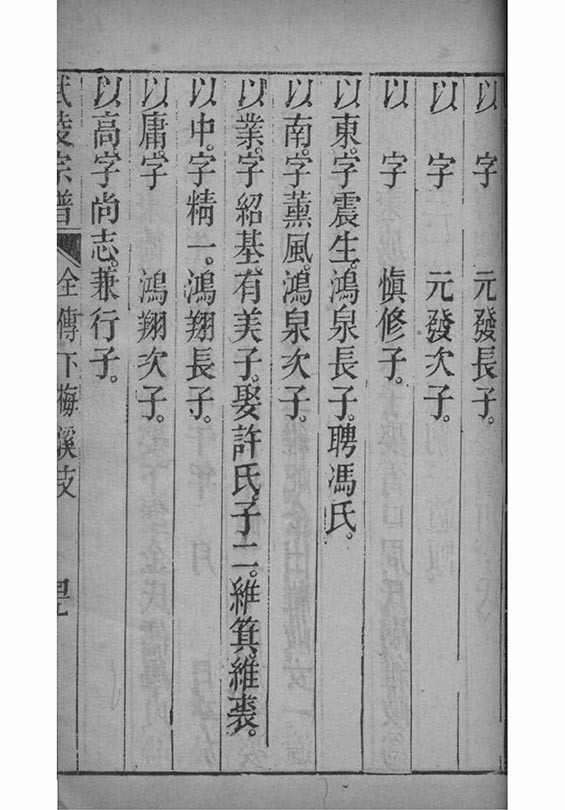 以　字　元發長子。
以　字　元發次子。
以　字　愼修子。
以東。字震生。鴻泉長子。聘馮氏。
以南。字薰風。鴻泉次子。
以業。字紹基。有美子。娶許氏。子二。維箕。維裘。
以中。字精一。鴻翔長子。
以庸。字　鴻翔次子。
以高。字尚志。兼行子。
武陵宗譜　仝傳下梅溪支